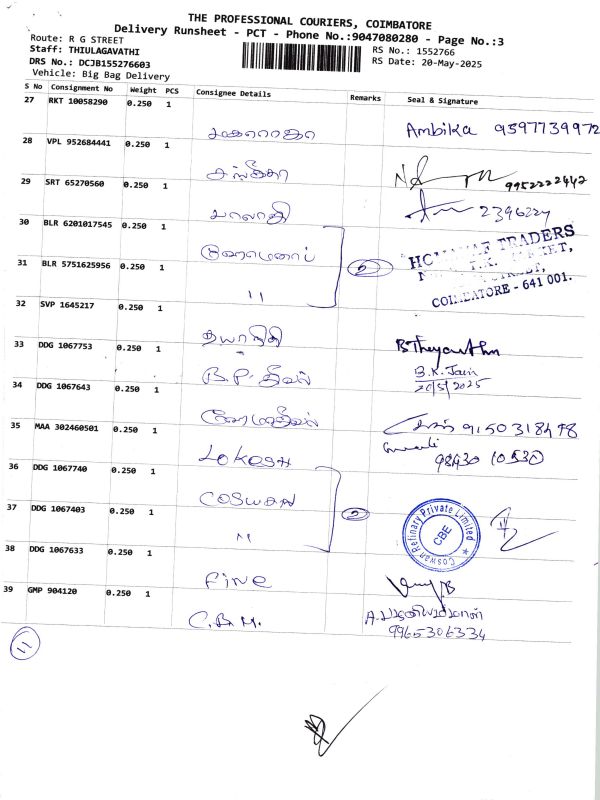 THE PROFESSIONAL COURIERS, COIMBATORE
Delivery Runsheet - PCT - Phone No.:9047080280 - Page No.:3
Route: R G STREET
Staff: THIULAGAVATHI
RS No.: 1552766
DRS No.: DCJB155276603
RS Date: 20-May-2025
Vehicle: Big Bag Delivery
S No Consignment No Weight PCS Consignee Details Remarks Seal & Signature
27 RKT 10058290 0.250 1
Ambika 9597739972
28 VPL 952684441 0.250 1
சங்கீதா
9952222442
29 SRT 65270560 0.250 1
பாலாஜி
2396224
30 BLR 6201017545 0.250 1
TRADERS
31 BLR 5751625956 0.250 1
"
COIMBATORE - 641 001.
32 SVP 1645217 0.250 1
தயாநிதி
33 DDG 1067753 0.250 1
B.P. தீபல்
B.K. Jain
20/5/2025
34 DDG 1067643 0.250 1
9150318498
35 MAA 302460501 0.250 1
Lokesh
98430 10530
36 DDG 1067740 0.250 1
COSWAN
2
Coswan Refinary Private Limited
CBE
37 DDG 1067403 0.250 1
"
38 DDG 1067633 0.250 1
Fine
39 GMP 904120 0.250 1
C.B.M.
A. பழனியம்மாள்
9965306334
11